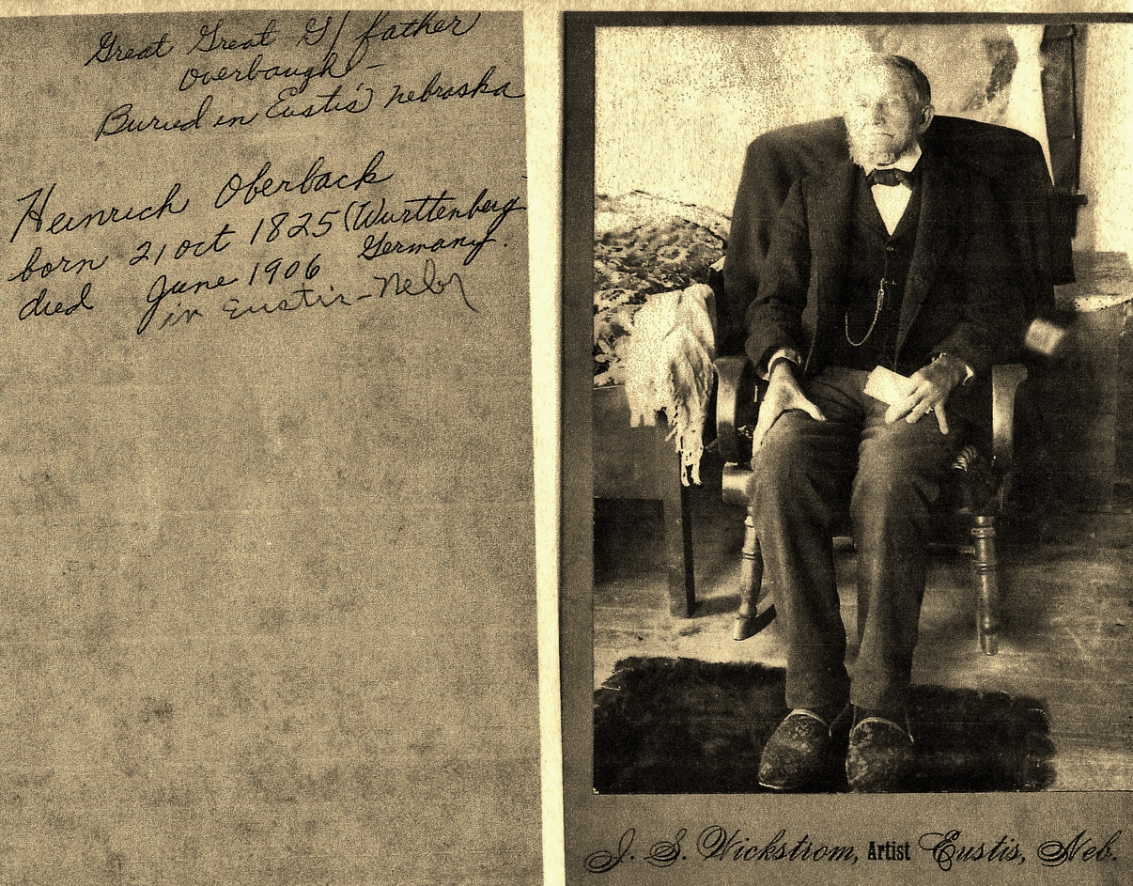 Great Great G/father
Overbaugh -
Buried in Eustis, nebraska
Heinrich Oberback
born 21 oct 1825 (Wurttenberg
died June 1906 Germany.
in Eustis - Nebr
J. S. Wickstrom, Artist Eustis, Neb.